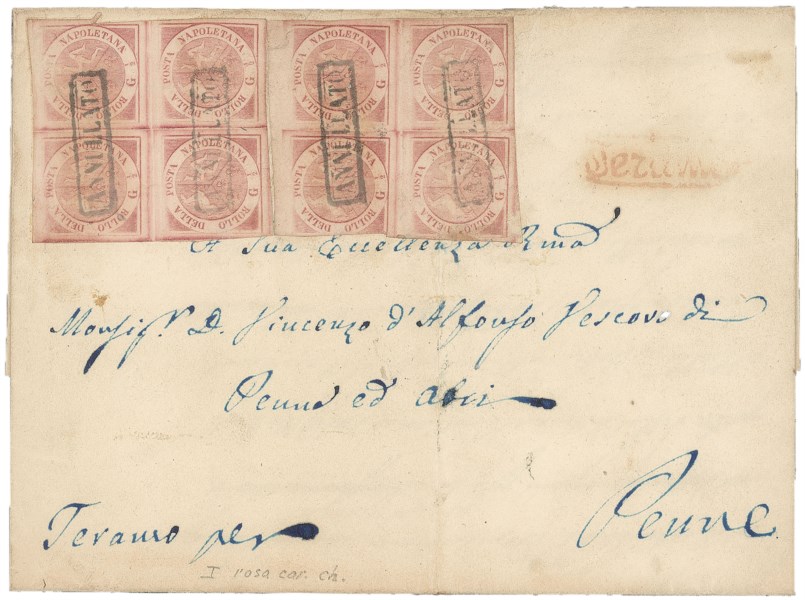 POSTA NAPOLETANA G ½ BOLLO DELLA
POSTA NAPOLETANA G ½ BOLLO DELLA
POSTA NAPOLETANA G ½ BOLLO DELLA
POSTA NAPOLETANA G ½ BOLLO DELLA
POSTA NAPOLETANA G BOLLO DELLA
POSTA NAPOLETANA G BOLLO DELLA
POSTA NAPOLETANA G BOLLO DELLA
POSTA NAPOLETANA G BOLLO DELLA
ANNULLATO
ANNULLATO
ANNULLATO
ANNULLATO
Teramo
A Sua Eccellenza Rma
Monsigr. D. Vincenzo d'Alfonso Vescovo di
Penne ed Atri
Teramo per Penne
I rosa car. ch.